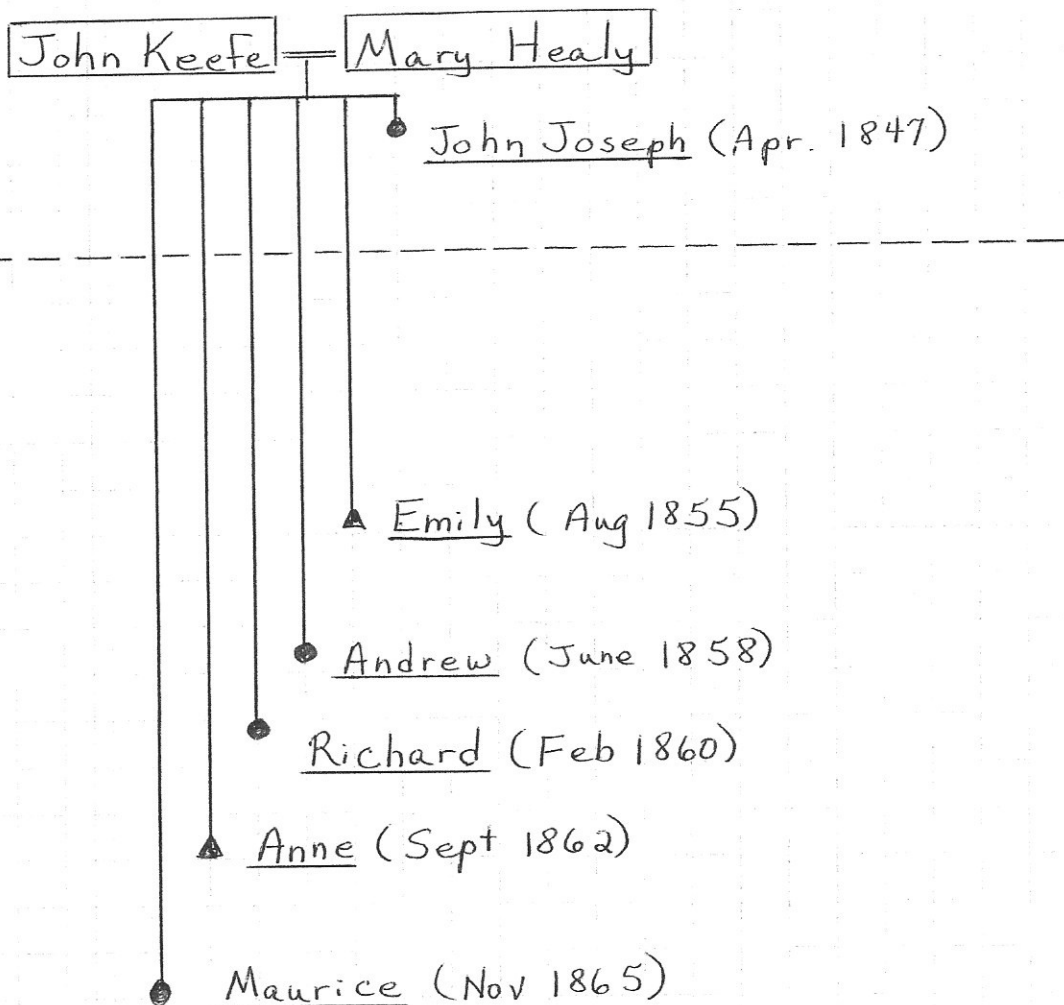 John Keefe Mary Healy
John Joseph (Apr. 1847)
Emily (Aug 1855)
Andrew (June 1858)
Richard (Feb 1860)
Anne (Sept 1862)
Maurice (Nov 1865)